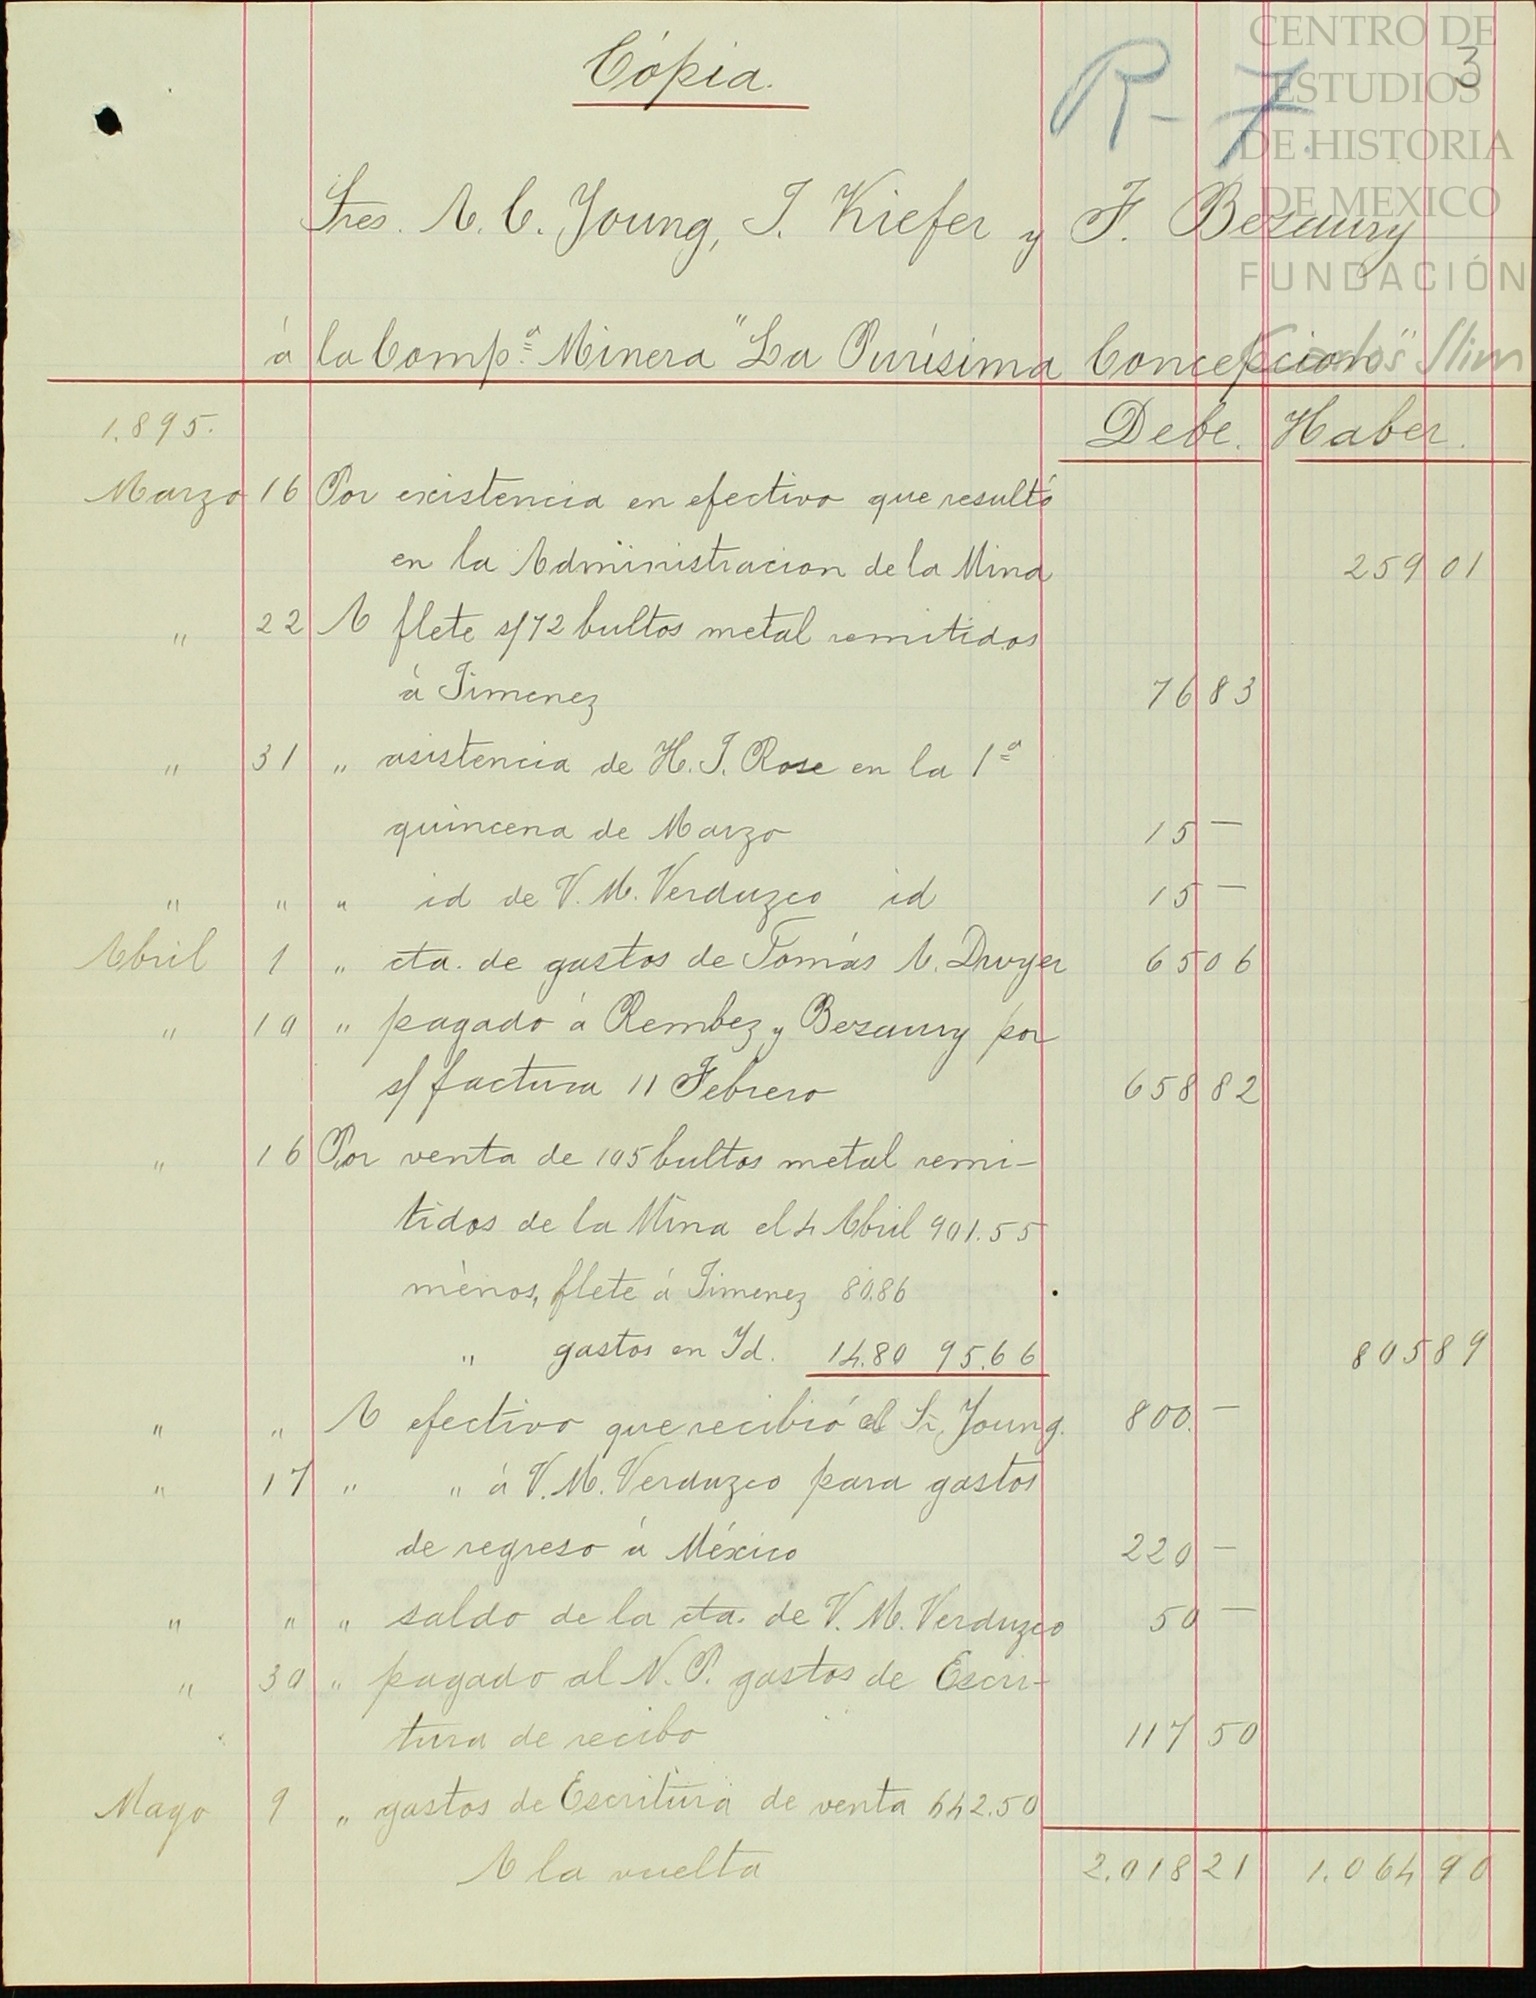 Cópia.
R-7.
3
CENTRO DE
ESTUDIOS
DE HISTORIA
DE MEXICO
FUNDACIÓN
Carlos Slim
Sres. A. C. Young, J. Kiefer y F. Bezaury
á la Comp.ª Minera "La Purísima Concepcion"
1.895. Debe. Haber.
Marzo 16 Por existencia en efectivo que resultó
en la Administracion de la Mina 259 01
" 22 A flete s/72 bultos metal remitidos
á Jimenez 76 83
" 31 " asistencia de H. J. Rose en la 1ª
quincena de Marzo 15 —
" " " id de V. M. Verduzco id 15 —
Abril 1 " cta. de gastos de Tomás A. Dwyer 65 06
" 10 " pagado á Rembez y Bezaury por
s/ factura 11 Febrero 658 82
" 16 Por venta de 105 bultos metal remi-
tidos de la Mina el 4 Abril 901.55
ménos, flete á Jimenez 80.86
" gastos en Id. 14.80 95.66 805 89
" " A efectivo que recibió el Sr. Young. 800. —
" 17 " " á V. M. Verduzco para gastos
de regreso á México 220 —
" " " saldo de la cta. de V. M. Verduzco 50 —
" 30 " pagado al N. P. gastos de Escri-
tura de recibo 117 50
Mayo 9 " gastos de Escritura de venta 642.50
A la vuelta 2.018 21 1.064 90